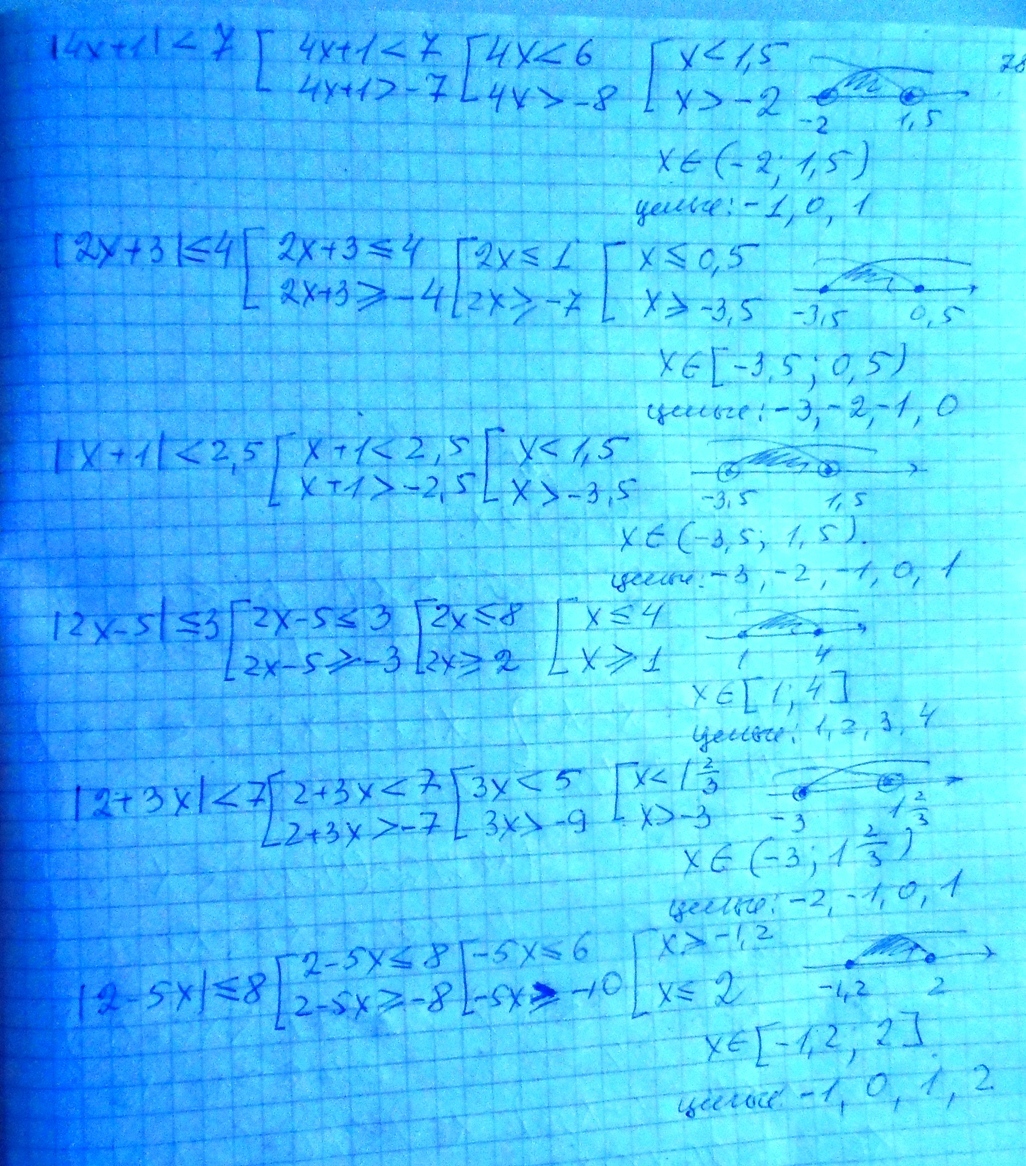 |4x+1|<7 [ 4x+1<7 [ 4x<6 [ x<1,5
4x+1>-7 4x>-8 x>-2 -2 1,5
x∈(-2; 1,5)
целые: -1, 0, 1
|2x+3|≤4 [ 2x+3≤4 [ 2x≤1 [ x≤0,5
2x+3≥-4 2x≥-7 x≥-3,5 -3,5 0,5
x∈[-3,5; 0,5)
целые: -3, -2, -1, 0
|x+1|<2,5 [ x+1<2,5 [ x<1,5
x+1>-2,5 x>-3,5 -3,5 1,5
x∈(-3,5; 1,5).
целые: -3, -2, -1, 0, 1
|2x-5|≤3 [ 2x-5≤3 [ 2x≤8 [ x≤4
2x-5≥-3 2x≥2 x≥1 1 4
x∈[1; 4]
целые: 1, 2, 3, 4
|2+3x|<7 [ 2+3x<7 [ 3x<5 [ x<1 2/3
2+3x>-7 3x>-9 x>-3 -3 1 2/3
x∈(-3; 1 2/3)
целые: -2, -1, 0, 1
|2-5x|≤8 [ 2-5x≤8 [ -5x≤6 [ x≥-1,2
2-5x≥-8 -5x≥-10 x≤2 -1,2 2
x∈[-1,2; 2]
целые -1, 0, 1, 2